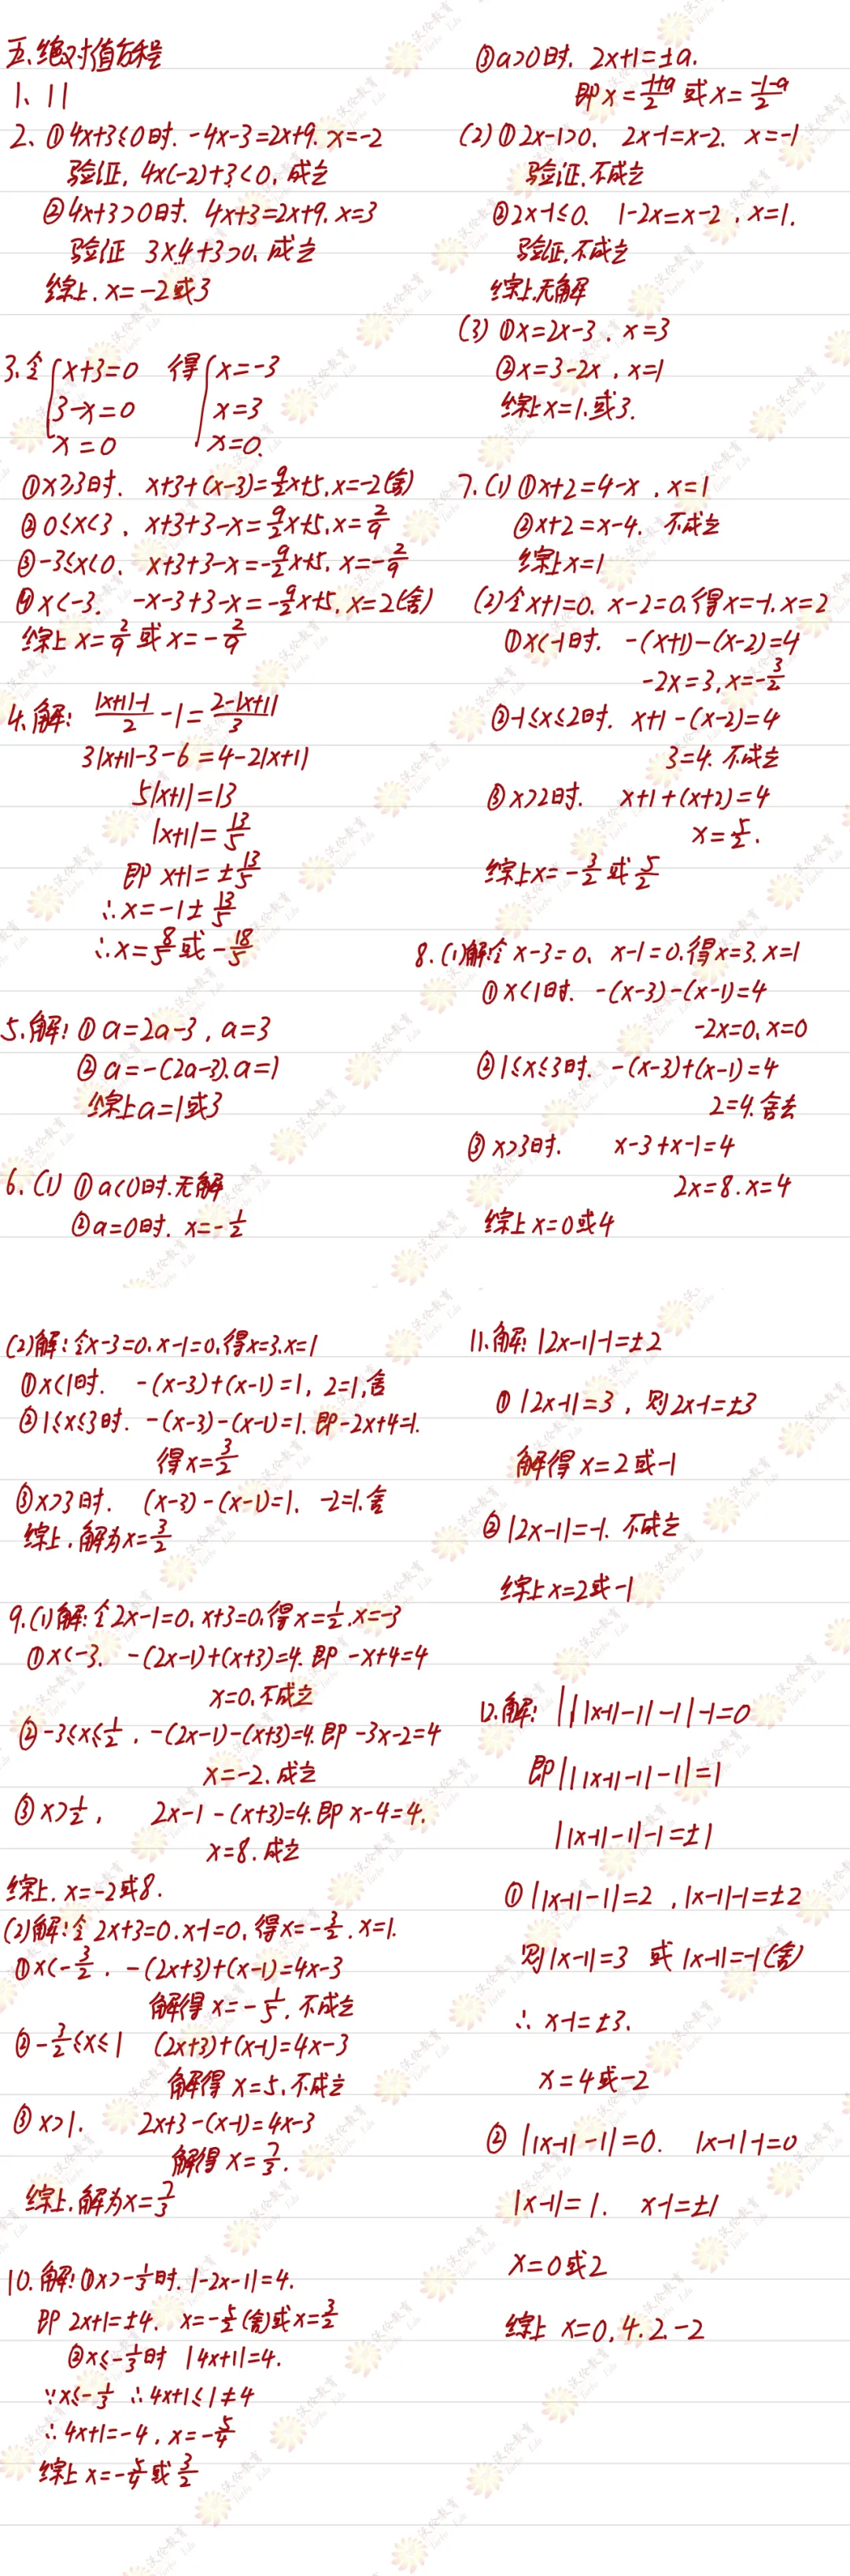 五、绝对值方程
1、11
2、①4x+3≤0时. -4x-3=2x+9. x=-2
验证, 4×(-2)+3<0, 成立
②4x+3>0时. 4x+3=2x+9. x=3
验证 3×4+3>0. 成立
综上. x=-2或3
3.令{x+3=0 得{x=-3
3-x=0 x=3
x=0 x=0.
①x≥3时. x+3+(x-3)=9/2x+5, x=-2(舍)
②0≤x<3, x+3+3-x=9/2x+5. x=2/9
③-3≤x<0. x+3+3-x=-9/2x+5, x=-2/9
④x<-3. -x-3+3-x=-9/2x+5, x=2(舍)
综上 x=2/9 或 x=-2/9
4.解: (|x+1|-1)/2 -1=(2-|x+1|)/3
3|x+1|-3-6=4-2|x+1|
5|x+1|=13
|x+1|=13/5
即 x+1=±13/5
∴x=-1±13/5
∴x=8/5或-18/5
5.解: ①a=2a-3, a=3
②a=-(2a-3). a=1
综上a=1或3
6. (1) ①a<0时.无解
②a=0时. x=-1/2
③a>0时. 2x+1=±a.
即x=(-1+a)/2 或x=(-1-a)/2
(2)①2x-1>0. 2x-1=x-2. x=-1
验证.不成立
②2x-1≤0. 1-2x=x-2, x=1.
验证.不成立
综上.无解
(3) ①x=2x-3. x=3
②x=3-2x, x=1
综上x=1.或3.
7. (1) ①x+2=4-x, x=1
②x+2=x-4. 不成立
综上x=1
(2)令x+1=0. x-2=0.得x=-1. x=2
①x<-1时. -(x+1)-(x-2)=4
-2x=3, x=-3/2
②-1≤x≤2时. x+1-(x-2)=4
3=4. 不成立
③x>2时. x+1+(x+2)=4
x=5/2.
综上x=-3/2或5/2
8. (1)解:令 x-3=0、x-1=0.得x=3. x=1
①x<1时. -(x-3)-(x-1)=4
-2x=0. x=0
②1≤x≤3时. -(x-3)+(x-1)=4
2=4. 舍去
③x>3时. x-3+x-1=4
2x=8. x=4
综上x=0或4
(2)解:令x-3=0. x-1=0.得x=3. x=1
①x<1时. -(x-3)+(x-1)=1, 2=1, 舍
②1≤x≤3时. -(x-3)-(x-1)=1. 即-2x+4=1.
得x=3/2
③x>3时. (x-3)-(x-1)=1. -2=1.舍
综上.解为x=3/2
9. (1)解:令2x-1=0. x+3=0.得x=1/2. x=-3
①x<-3. -(2x-1)+(x+3)=4.即 -x+4=4
x=0.不成立
②-3≤x≤1/2, -(2x-1)-(x+3)=4.即 -3x-2=4
x=-2.成立
③x>1/2, 2x-1-(x+3)=4.即 x-4=4.
x=8.成立
综上. x=-2或8.
(2)解:令2x+3=0. x-1=0.得x=-3/2. x=1.
①x<-3/2. -(2x+3)+(x-1)=4x-3
解得x=-1/5. 不成立
②-3/2≤x≤1 (2x+3)+(x-1)=4x-3
解得x=5.不成立
③x>1. 2x+3-(x-1)=4x-3
解得x=7/3.
综上.解为x=7/3
10.解:①x>-1/3时. |-2x-1|=4.
即2x+1=±4. x=-5/2(舍)或x=3/2
②x≤-1/3时 |4x+1|=4.
∵x≤-1/3 ∴4x+1≤1≠4
∴4x+1=-4, x=-5/4
综上x=-5/4或3/2
11.解: |2x-1|-1=±2
①|2x-1|=3, 则2x-1=±3
解得x=2或-1
②|2x-1|=-1. 不成立
综上x=2或-1
12.解: |||x-1|-1|-1|-1=0
即|||x-1|-1|-1|=1
||x-1|-1|-1=±1
①||x-1|-1|=2, |x-1|-1=±2
则|x-1|=3 或|x-1|=-1(舍)
∴x-1=±3.
x=4或-2
②||x-1|-1|=0. |x-1|-1=0
|x-1|=1. x-1=±1
x=0或2
综上 x=0. 4. 2. -2
沃伦教育
Turbo Edu